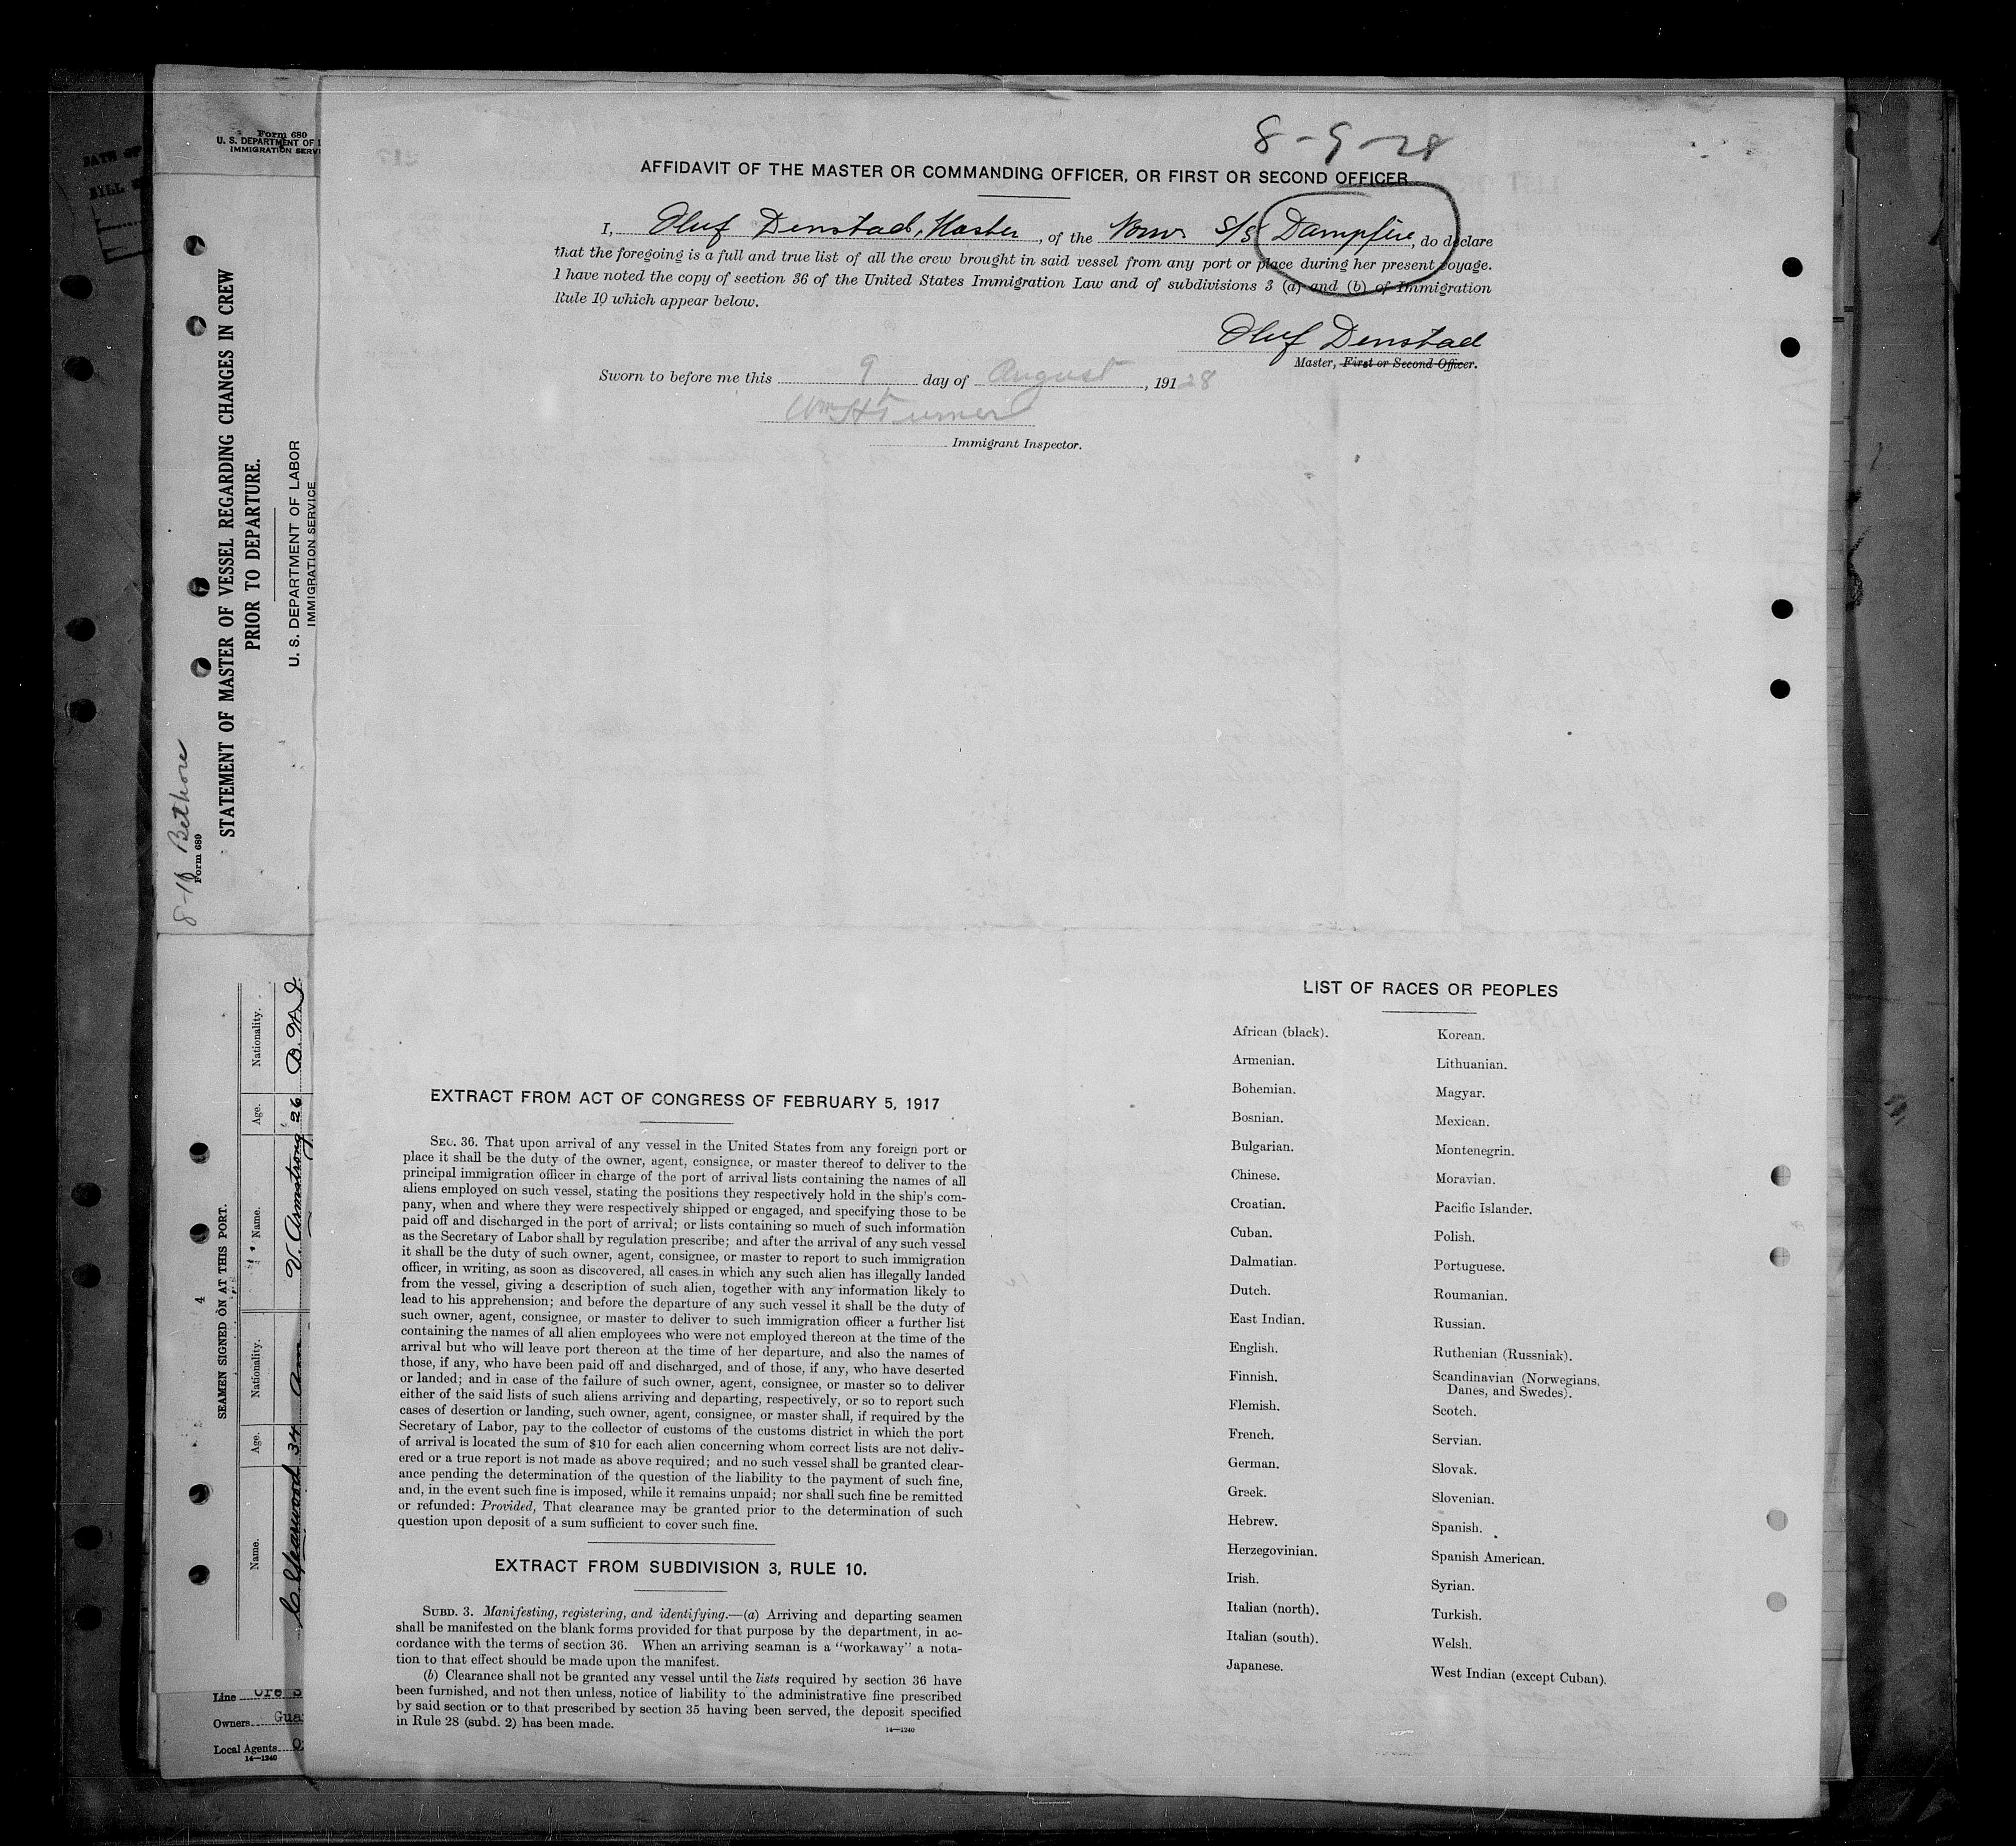 DATE OF
BILL
Form 680
U. S. DEPARTMENT OF
IMMIGRATION SERVI
STATEMENT OF MASTER OF VESSEL REGARDING CHANGES IN CREW
PRIOR TO DEPARTURE.
U. S. DEPARTMENT OF LABOR
IMMIGRATION SERVICE
Form 680
4
SEAMEN SIGNED ON AT THIS PORT.
Name. Age. Nationality. Name. Age. Nationality.
34 V. Armstrong 26
Line Ore S
Owners Gua
Local Agents O
14—1240
8-9-28
AFFIDAVIT OF THE MASTER OR COMMANDING OFFICER, OR FIRST OR SECOND OFFICER
I, Oluf Denstad, Master, of the Norw S/S Dampfire, do declare
that the foregoing is a full and true list of all the crew brought in said vessel from any port or place during her present voyage.
I have noted the copy of section 36 of the United States Immigration Law and of subdivisions 3 (a) and (b) of Immigration
Rule 10 which appear below.
Oluf Denstad
Master, First or Second Officer.
Sworn to before me this 9 day of August, 191 28
Wm H Turner
Immigrant Inspector.
EXTRACT FROM ACT OF CONGRESS OF FEBRUARY 5, 1917
SEC. 36. That upon arrival of any vessel in the United States from any foreign port or
place it shall be the duty of the owner, agent, consignee, or master thereof to deliver to the
principal immigration officer in charge of the port of arrival lists containing the names of all
aliens employed on such vessel, stating the positions they respectively hold in the ship's com-
pany, when and where they were respectively shipped or engaged, and specifying those to be
paid off and discharged in the port of arrival; or lists containing so much of such information
as the Secretary of Labor shall by regulation prescribe; and after the arrival of any such vessel
it shall be the duty of such owner, agent, consignee, or master to report to such immigration
officer, in writing, as soon as discovered, all cases in which any such alien has illegally landed
from the vessel, giving a description of such alien, together with any information likely to
lead to his apprehension; and before the departure of any such vessel it shall be the duty of
such owner, agent, consignee, or master to deliver to such immigration officer a further list
containing the names of all alien employees who were not employed thereon at the time of the
arrival but who will leave port thereon at the time of her departure, and also the names of
those, if any, who have been paid off and discharged, and of those, if any, who have deserted
or landed; and in case of the failure of such owner, agent, consignee, or master so to deliver
either of the said lists of such aliens arriving and departing, respectively, or so to report such
cases of desertion or landing, such owner, agent, consignee, or master shall, if required by the
Secretary of Labor, pay to the collector of customs of the customs district in which the port
of arrival is located the sum of $10 for each alien concerning whom correct lists are not deliv-
ered or a true report is not made as above required; and no such vessel shall be granted clear-
ance pending the determination of the question of the liability to the payment of such fine,
and, in the event such fine is imposed, while it remains unpaid; nor shall such fine be remitted
or refunded: Provided, That clearance may be granted prior to the determination of such
question upon deposit of a sum sufficient to cover such fine.
EXTRACT FROM SUBDIVISION 3, RULE 10.
SUBD. 3. Manifesting, registering, and identifying.—(a) Arriving and departing seamen
shall be manifested on the blank forms provided for that purpose by the department, in ac-
cordance with the terms of section 36. When an arriving seaman is a "workaway" a nota-
tion to that effect should be made upon the manifest.
(b) Clearance shall not be granted any vessel until the lists required by section 36 have
been furnished, and not then unless, notice of liability to the administrative fine prescribed
by said section or to that prescribed by section 35 having been served, the deposit specified
in Rule 28 (subd. 2) has been made.
14—1240
LIST OF RACES OR PEOPLES
African (black).
Armenian.
Bohemian.
Bosnian.
Bulgarian.
Chinese.
Croatian.
Cuban.
Dalmatian.
Dutch.
East Indian.
English.
Finnish.
Flemish.
French.
German.
Greek.
Hebrew.
Herzegovinian.
Irish.
Italian (north).
Italian (south).
Japanese.
Korean.
Lithuanian.
Magyar.
Mexican.
Montenegrin.
Moravian.
Pacific Islander.
Polish.
Portuguese.
Roumanian.
Russian.
Ruthenian (Russniak).
Scandinavian (Norwegians,
Danes, and Swedes).
Scotch.
Servian.
Slovak.
Slovenian.
Spanish.
Spanish American.
Syrian.
Turkish.
Welsh.
West Indian (except Cuban).